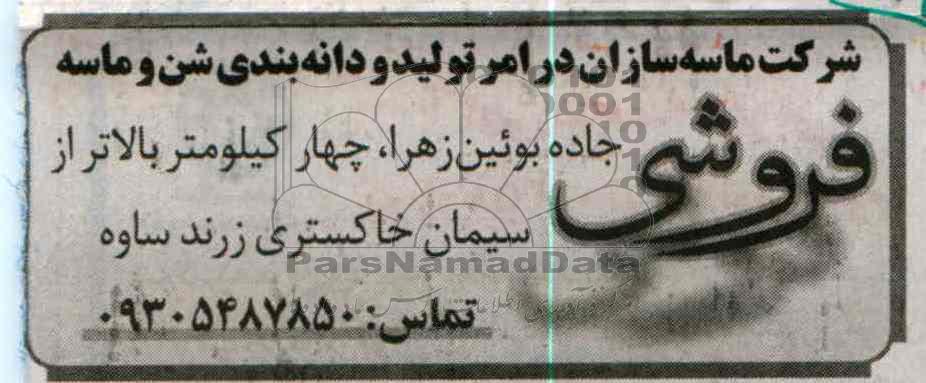 شرکت ماسه‌سازان در امر تولید و دانه‌بندی شن و ماسه
فروشی
جاده بوئین‌زهرا، چهار کیلومتر بالاتر از
سیمان خاکستری زرند ساوه
تماس: ۰۹۳۰۵۴۸۷۸۵۰
0001
ParsNamadData